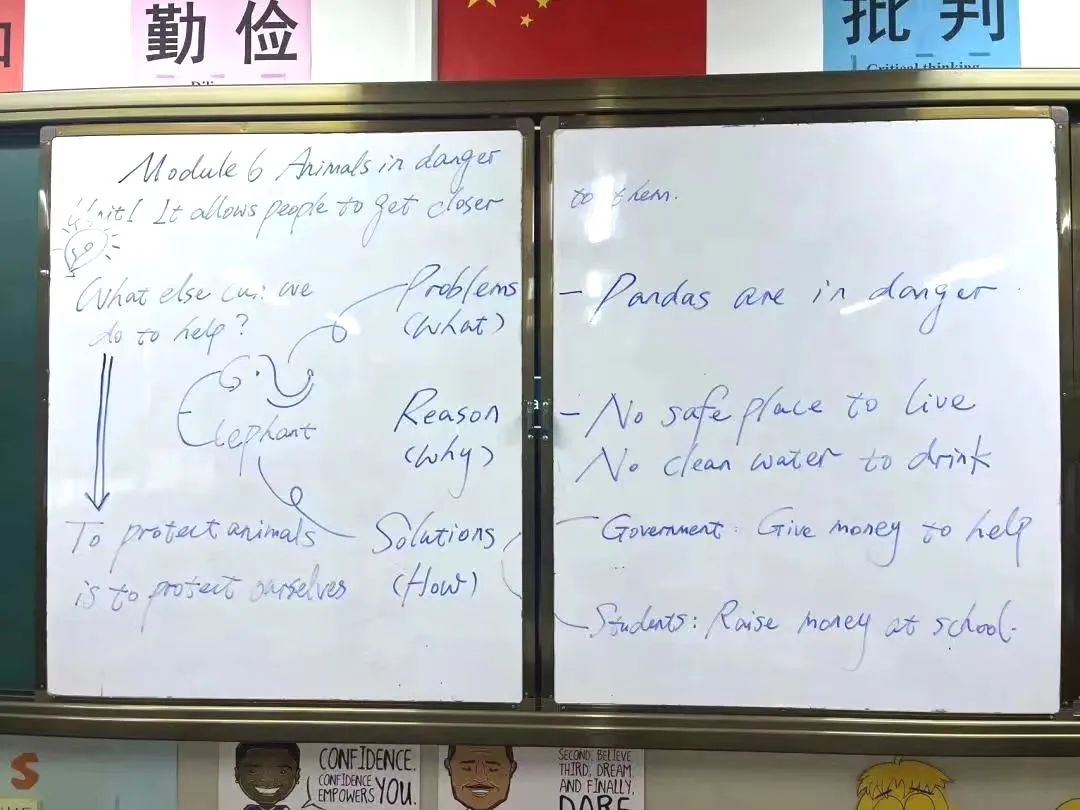 勤 俭
批 判
Critical thinking
Module 6 Animals in danger
Unit1 It allows people to get closer
to them.
What else can we
do to help?
Elephant
To protect animals
is to protect ourselves
Problems
(What)
- Pandas are in danger
Reason
(Why)
- No safe place to live
No clean water to drink
Solutions
(How)
Government: Give money to help
Students: Raise money at school.
S
CONFIDENCE.
CONFIDENCE
EMPOWERS YOU.
SECOND, BELIEVE.
THIRD, DREAM.
AND FINALLY,
DARE